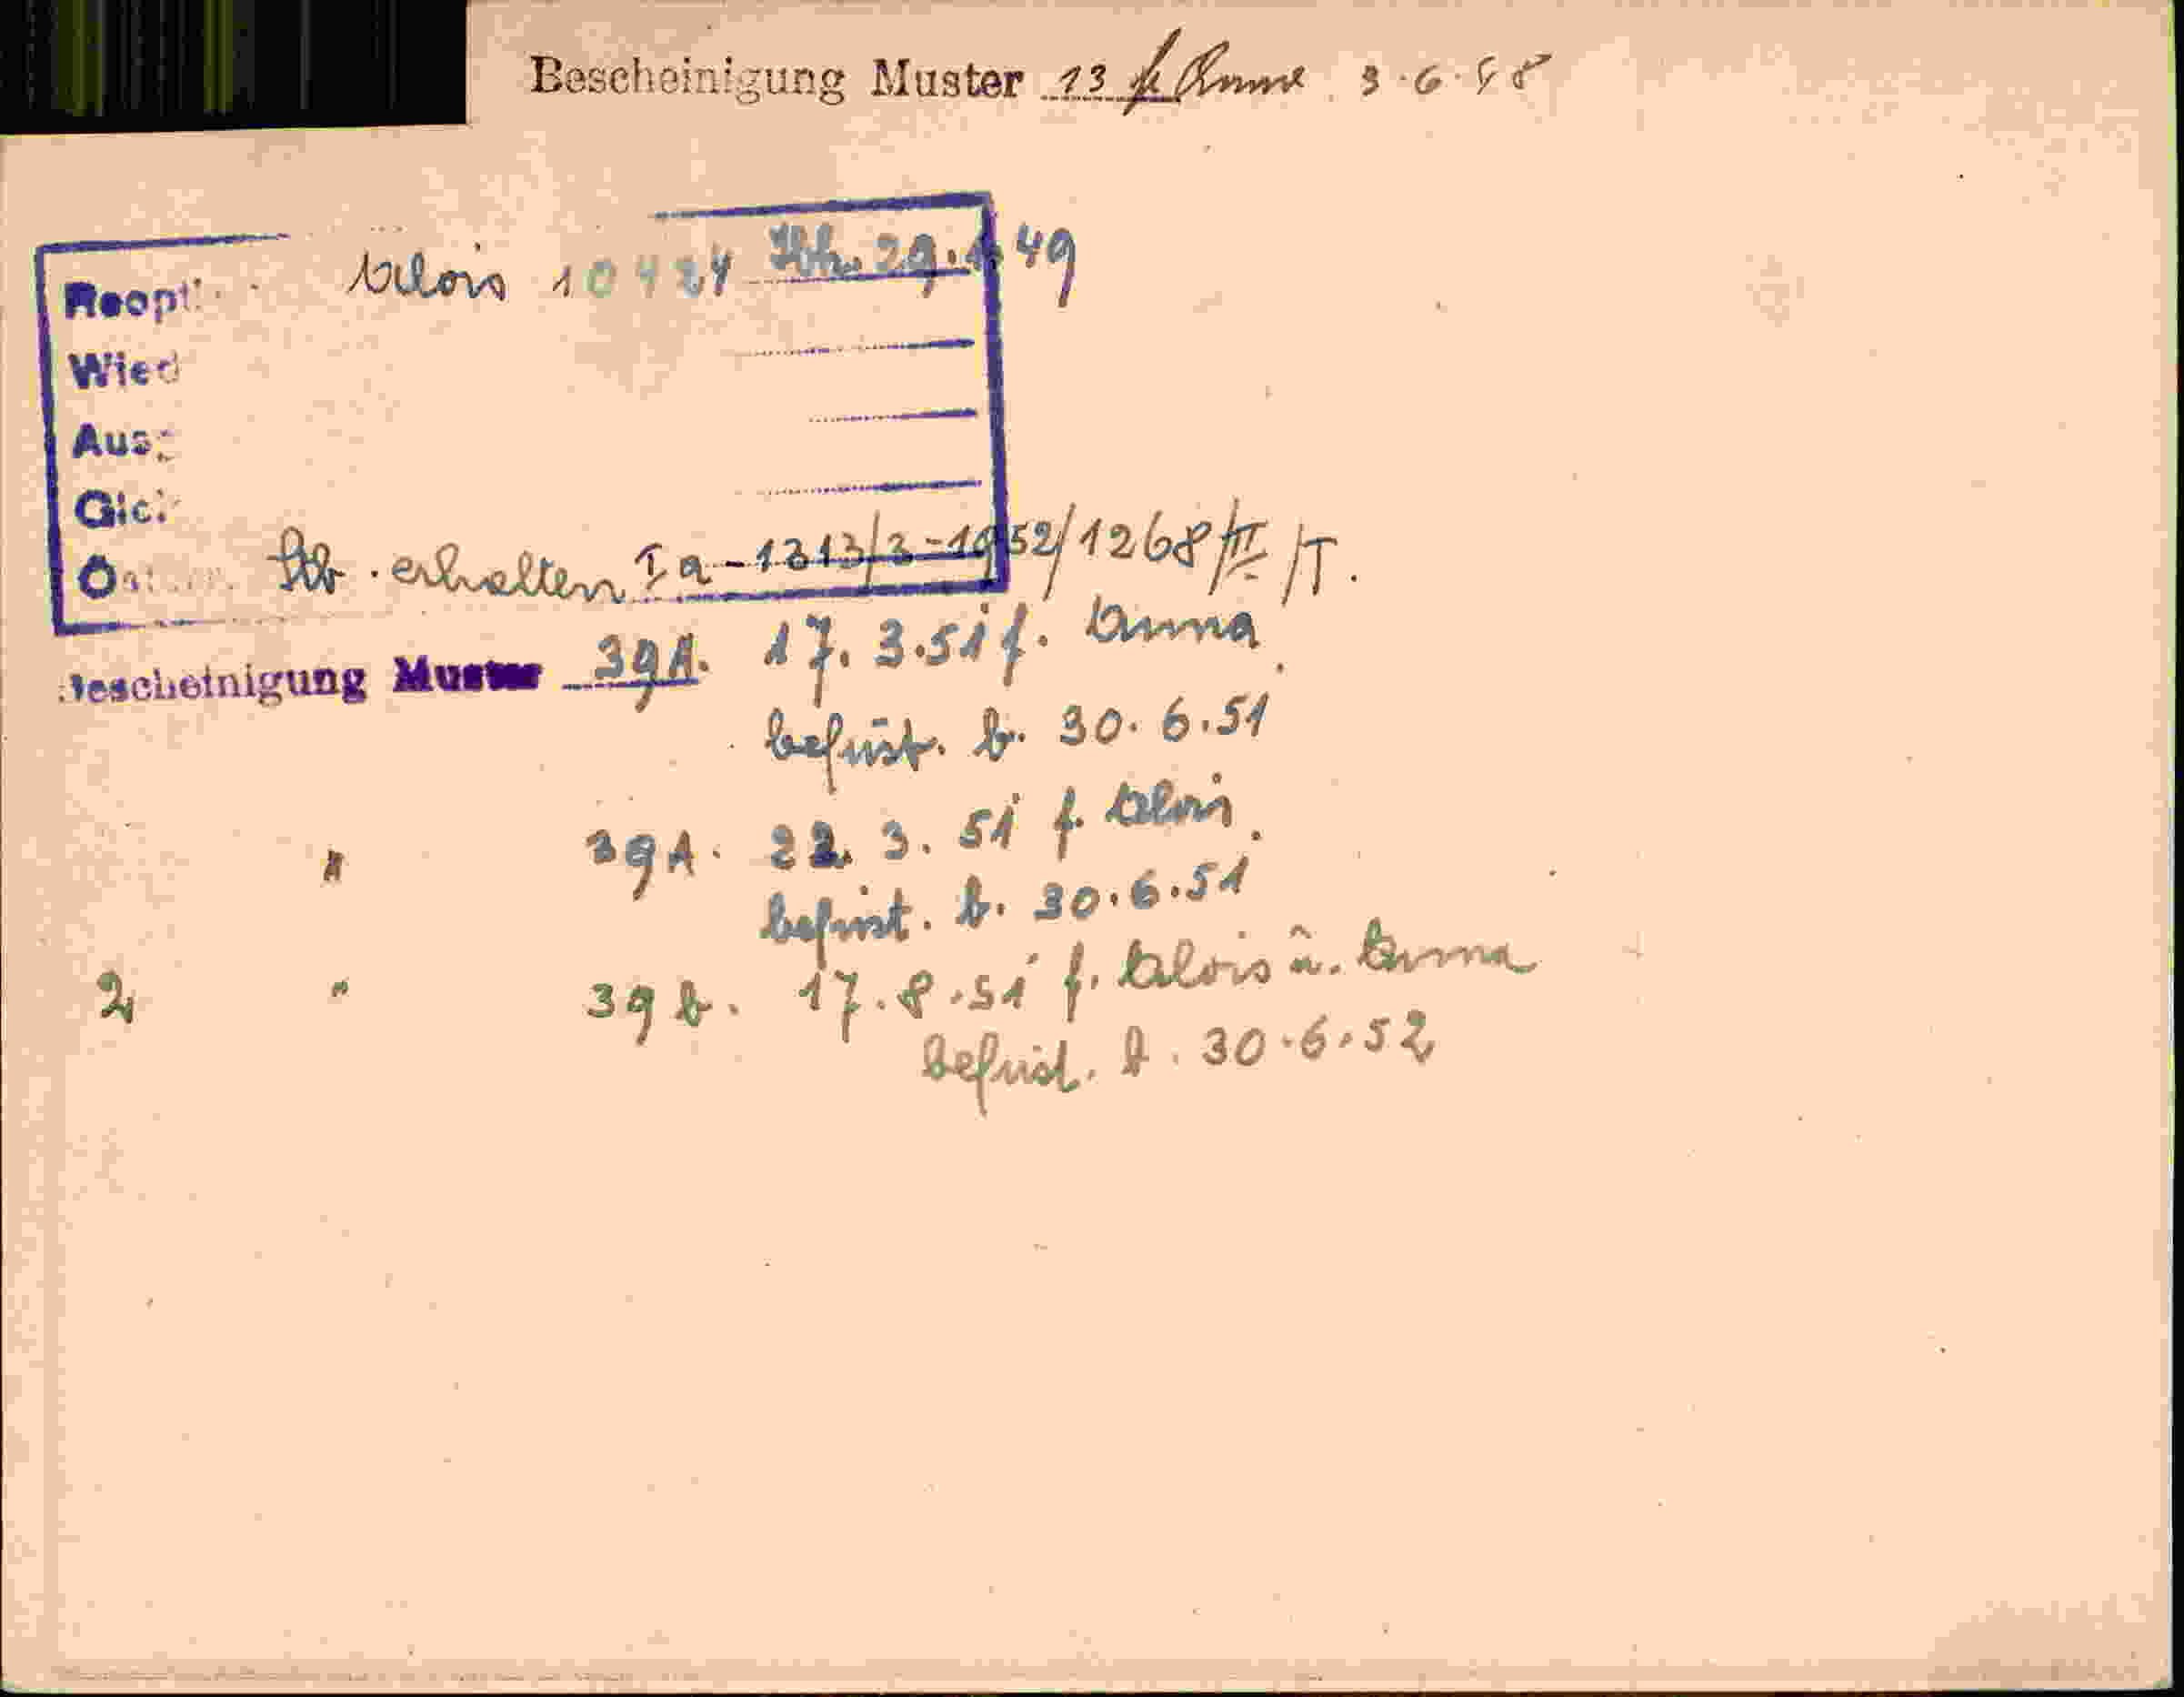 Bescheinigung Muster 13 f. Anna 3.6.48
Reopt. Alois 10424 29.1.49
Wied
Aus
Glei
Ö Stb. erhalten I a - 1313/3 - 1952/1268/II/T.
Bescheinigung Muster 39A. 17. 3.51 f. Anna
befrist. b. 30. 6.51
" 39A. 22. 3. 51 f. Alois
befrist. b. 30.6.51
2 " 39 b. 17.8.51 f. Alois u. Anna
befrist. b. 30.6.52